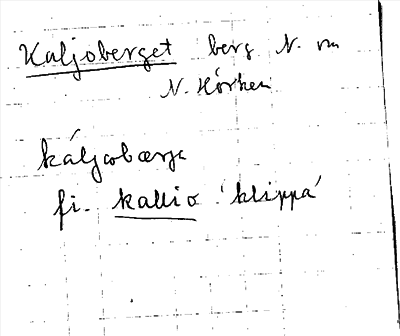 Kaljoberget berg N. om
N. Hörken
káljobærje
fi. kallio 'klippa'